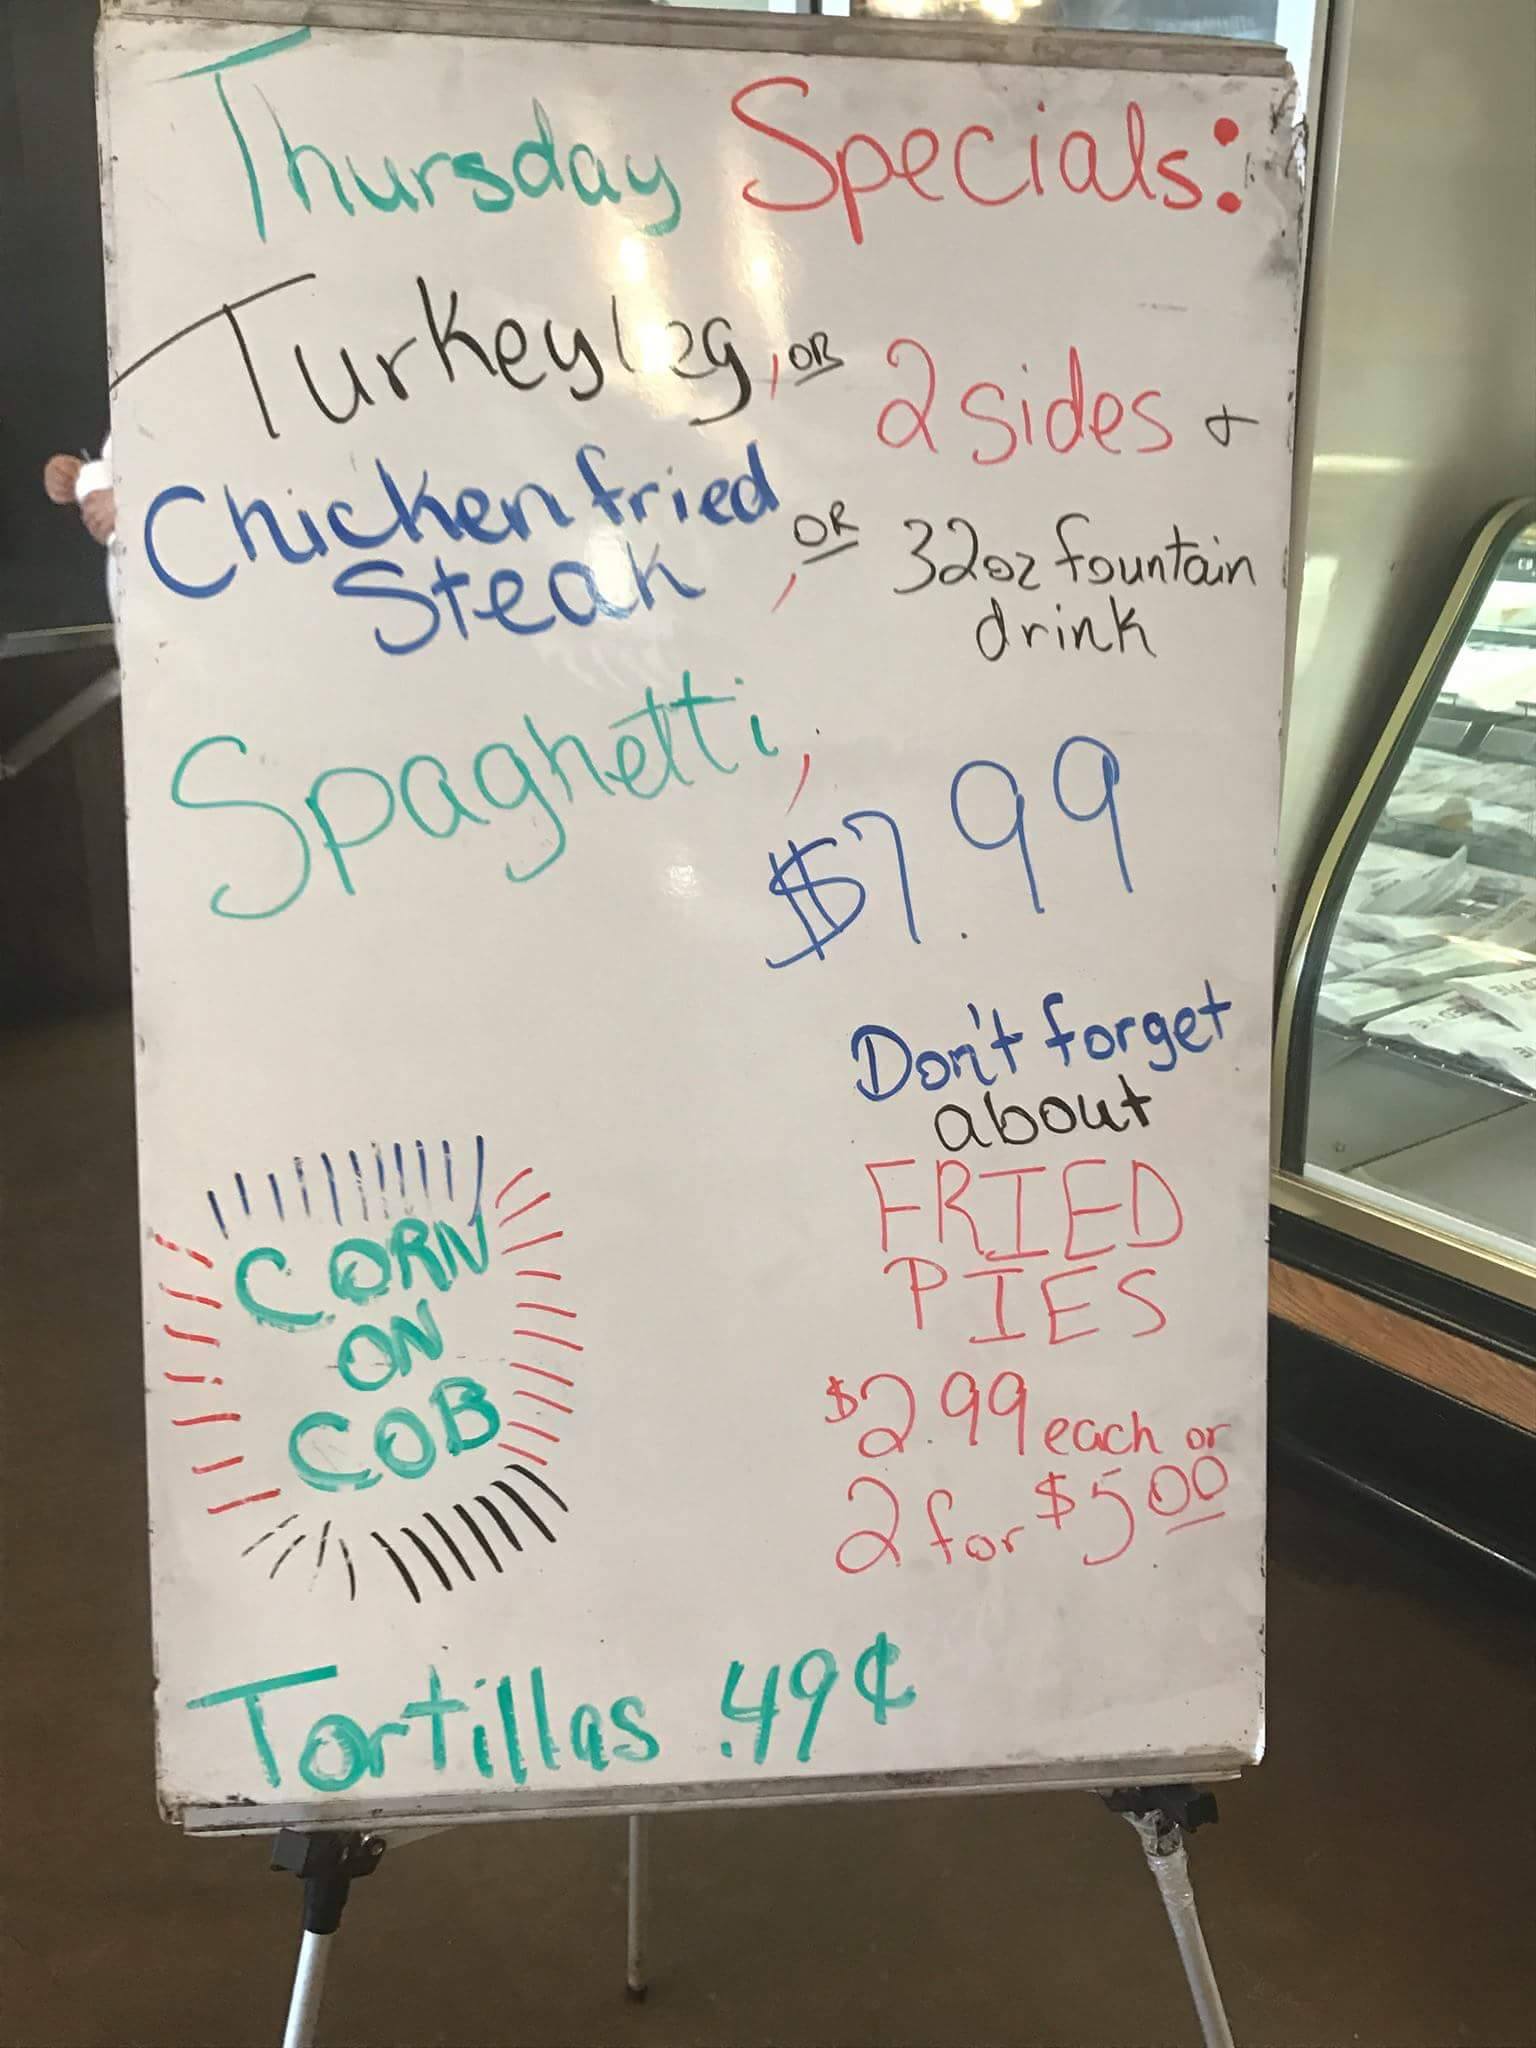 Thursday Specials:
Turkey leg, OR
Chicken fried
Steak, OR
Spaghetti,
2 sides &
32oz fountain
drink
$7.99
Don't forget
about
FRIED
PIES
$2.99 each or
2 for $5.00
CORN
ON
COB
Tortillas .49¢